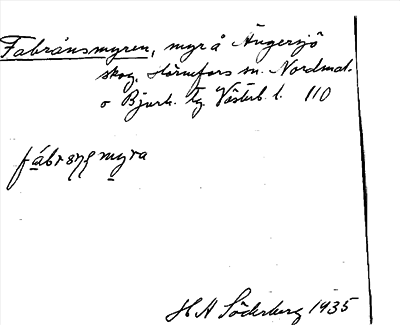 Fabränsmyren, myr å Ängersjö
skog, Hörnefors sn. Nordmal.
o Bjurh. tg. Västerb. l. 110
fábrsƞs myra
H A Söderberg 1935